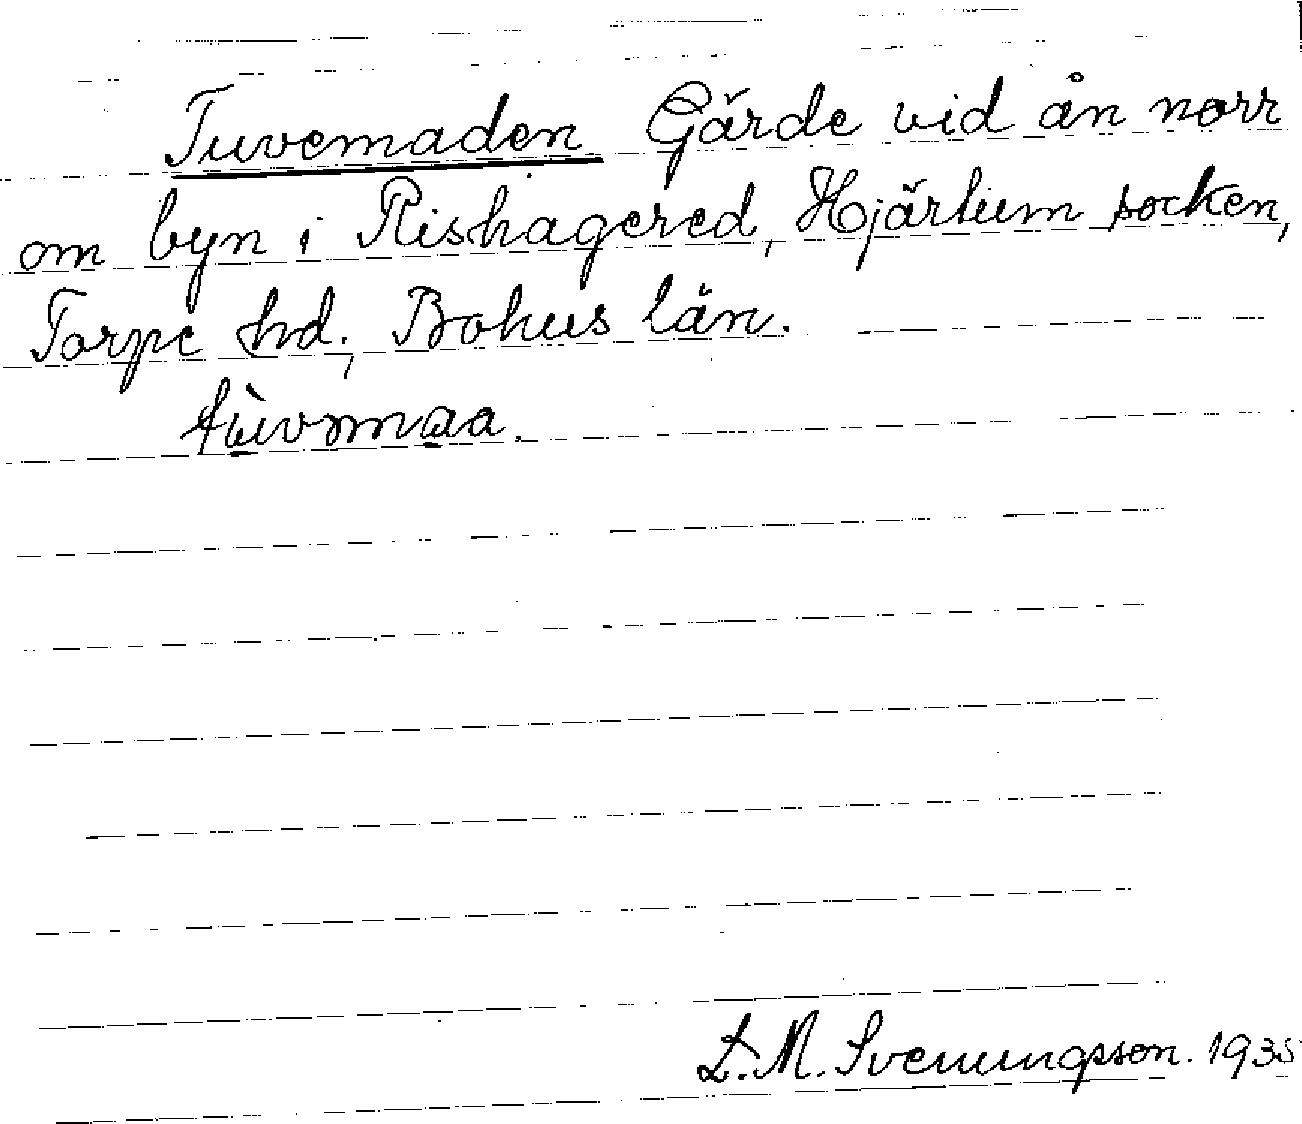 Tuvemaden Gärde vid ån norr
om byn i Rishagered, Hjärtum socken,
Torpe hd., Bohus län.
L. M. Svenungsson. 1935